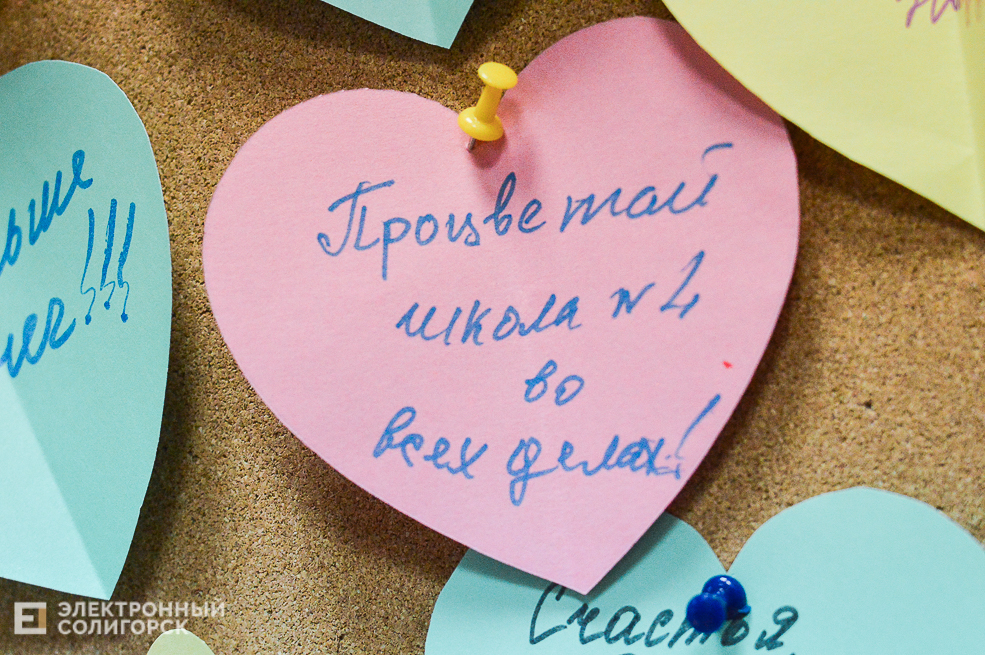 Процветай
школа № 4
во
всех делах!
!!!
Счастья
ЭЛЕКТРОННЫЙ
СОЛИГОРСК